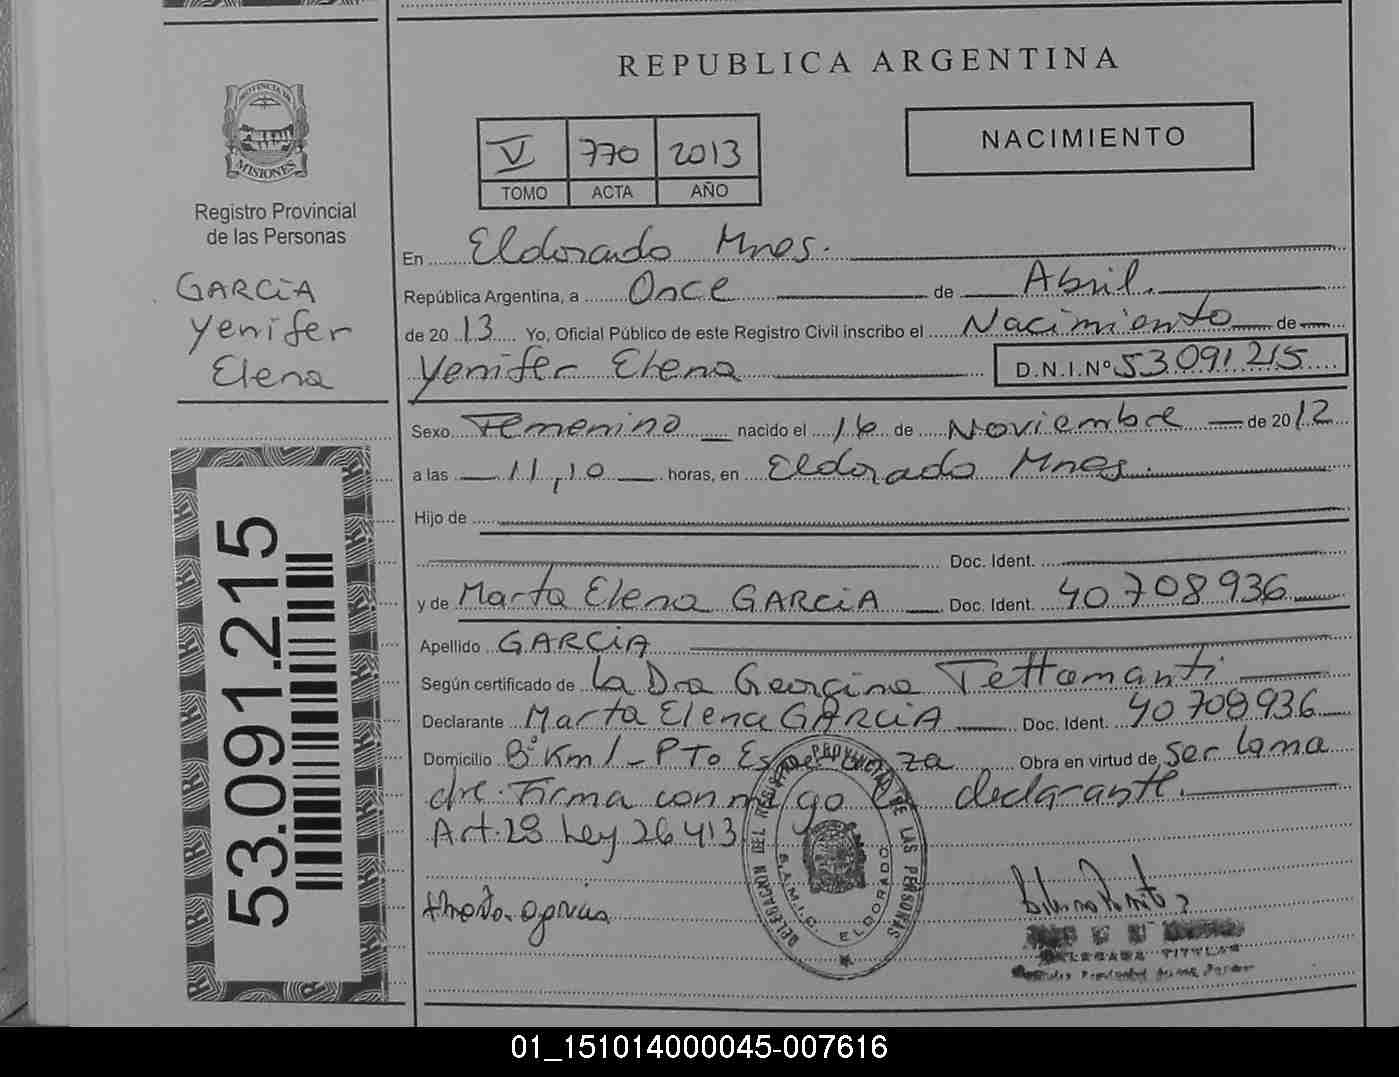 REPUBLICA ARGENTINA
PROVINCIA DE
MISIONES
Registro Provincial
de las Personas
GARCiA
Yenifer
Elena
53.091.215
V 770 2013
TOMO ACTA AÑO
NACIMIENTO
En Eldorado Mnes.
República Argentina, a Once de Abril.
de 2013 Yo, Oficial Público de este Registro Civil inscribo el Nacimiento de
Yenifer Elena D.N.I.Nº 53.091.215
Sexo Femenino nacido el 16 de Noviembre de 2012
a las 11,10 horas, en Eldorado Mnes.
Hijo de
Doc. Ident.
y de Marta Elena GARCiA Doc. Ident. 40708936
Apellido GARCiA
Según certificado de La Dra Georgina Tettamanti
Declarante Marta Elena GARCiA Doc. Ident. 40708936
Domicilio Bº Km 1 - PTo Esperanza Obra en virtud de ser la ma
dre. Firma conmigo la declarante.
Art. 28 Ley 26413
DELEGACION DEL REGISTRO PROVINCIAL DE LAS PERSONAS
S.A.M.I.C. ELDORADO
TITULAR
01_151014000045-007616